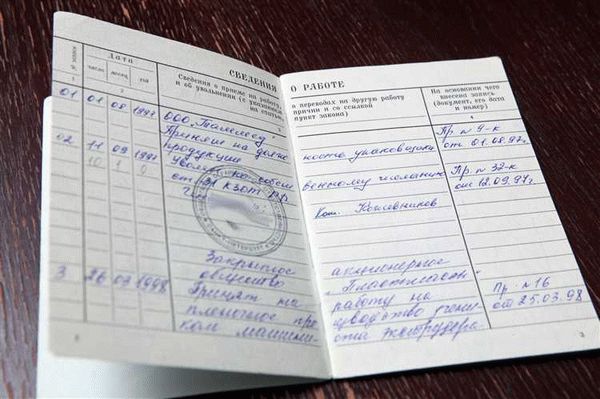 СВЕДЕНИЯ О РАБОТЕ
№ записи
Дата
число
месяц
год
Сведения о приеме на работу,
о переводах на другую работу
и об увольнении (с указанием
причин и со ссылкой
на статью,
пункт закона)
На основании чего
внесена запись
(документ, его дата
и номер)
1
2
3
4
01 01 08 1997 ООО
Принят на долж
ность упаковщика
Пр. № 9-к
продукции
от 01.08.97г.
02 11 09 1997 Уволен по собст
венному желанию
Пр. № 32-к
ст 31 КЗОТ РФ
от 12.09.97г.
Кожевников
Закрытое
акционерное
общество
3 26 03 1998 Принят на
работу на
Пр. № 16
пленочное пр
изводство учени
от 25.03.98
ком машини
ста экструдера
3